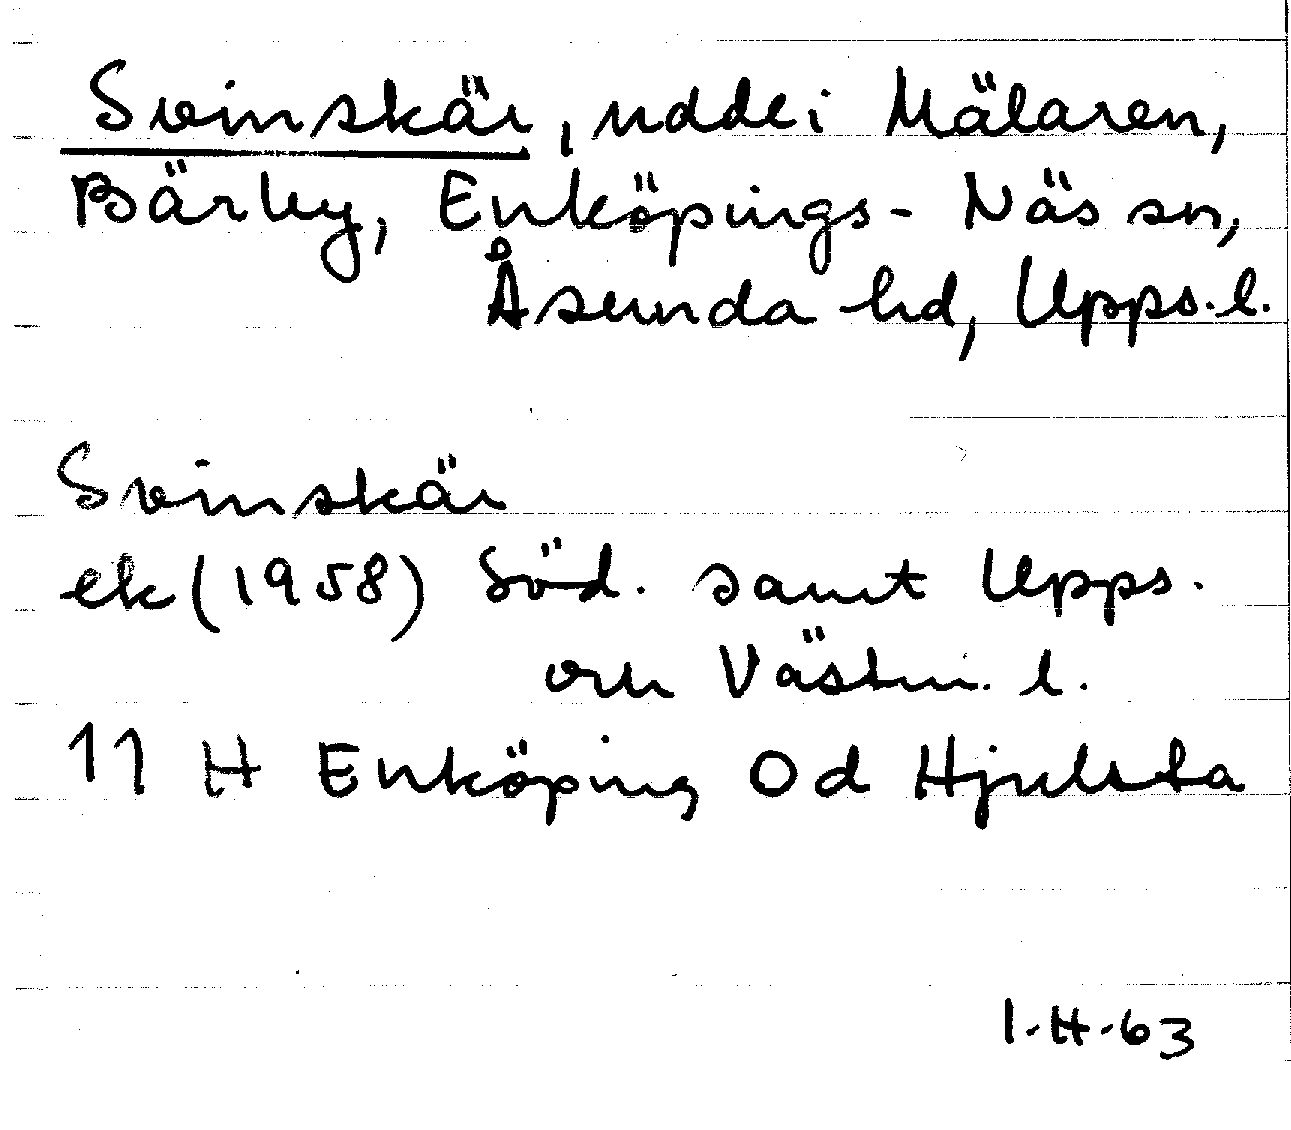 Svinskär, udde i Mälaren,
Bärby, Enköpings-Näs sn,
Åsunda hd, Upps. l.
Svinskär
ek (1958) Söd. samt Upps.
och Västm. l.
11 H Enköping 0d Hjulsta
I.H.63